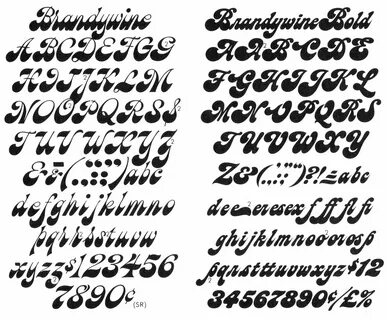 Brandywine
ABCDEFG
HIJKLM
NOPQRS&
TUVWXYZ
&-&(.,:;!?)abc
defghijklmno
pqrstuvw
xyz$123456
7890¢
(SR)
Brandywine Bold
ABCDE
FGHIJKL
MNOPQRS
TUVWXYZ
Z&(.,:;'"")?!abc
deeeresexffffifi
ghijklmnooorosp
pqrsttuvwxyz$12
34567890¢/£%